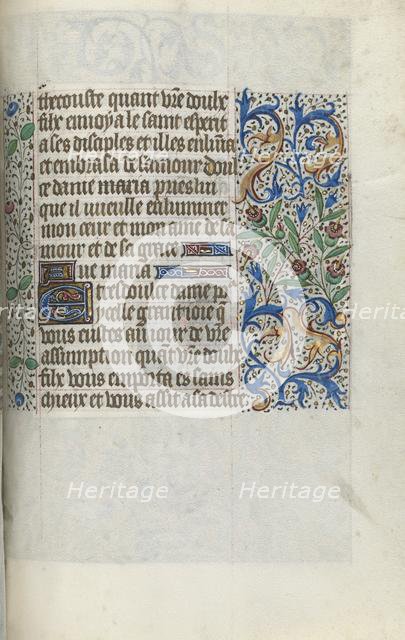 thecouste quant vre doulx
filz envoya le saint esperit
a ses disciples et illes enlumina
et embrasa de samour doul
ce dame maria pries luy
que il vueille enluminer
mon cueur et mon ame de la
mour et de sa grace
Ave maria
A tresdoulce dame p
ycelle grant ioie q
vous eustes au iour de vre
assumption quant vre doulx
filz vous emporta es sains
cieulx et vous assit a sa destre
Heritage
Heritage
Heritage
Heritage
Heritage
Heritage